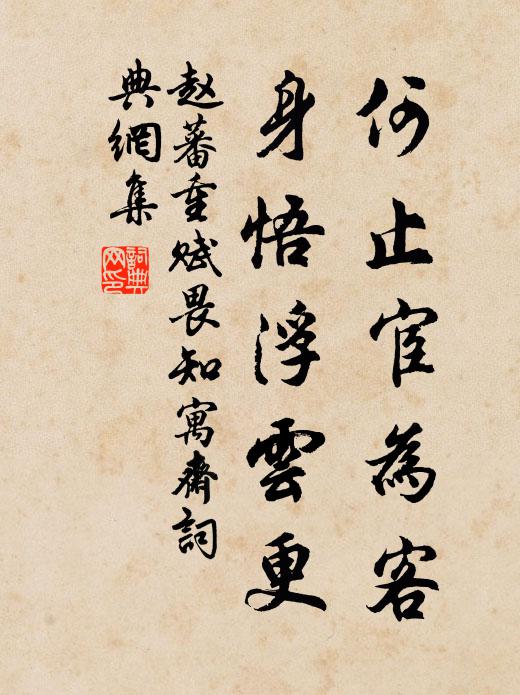 何止宦為客
身悟浮雲更
赵蕃重赋畏知寓齋詞
典網集
詞典
网印